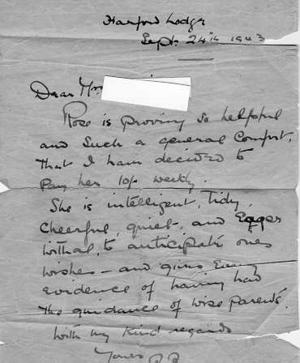 Harford Lodge
Sept. 24th 1943
Dear Mrs
Rose is proving so helpful
and such a general Comfort,
that I have decided to
pay her 10/- weekly.
She is intelligent, tidy,
cheerful, quiet, and Eager
withal, to anticipate ones
wishes – and gives Every
evidence of having had
the guidance of wise parents.
With my kind regards
Yours